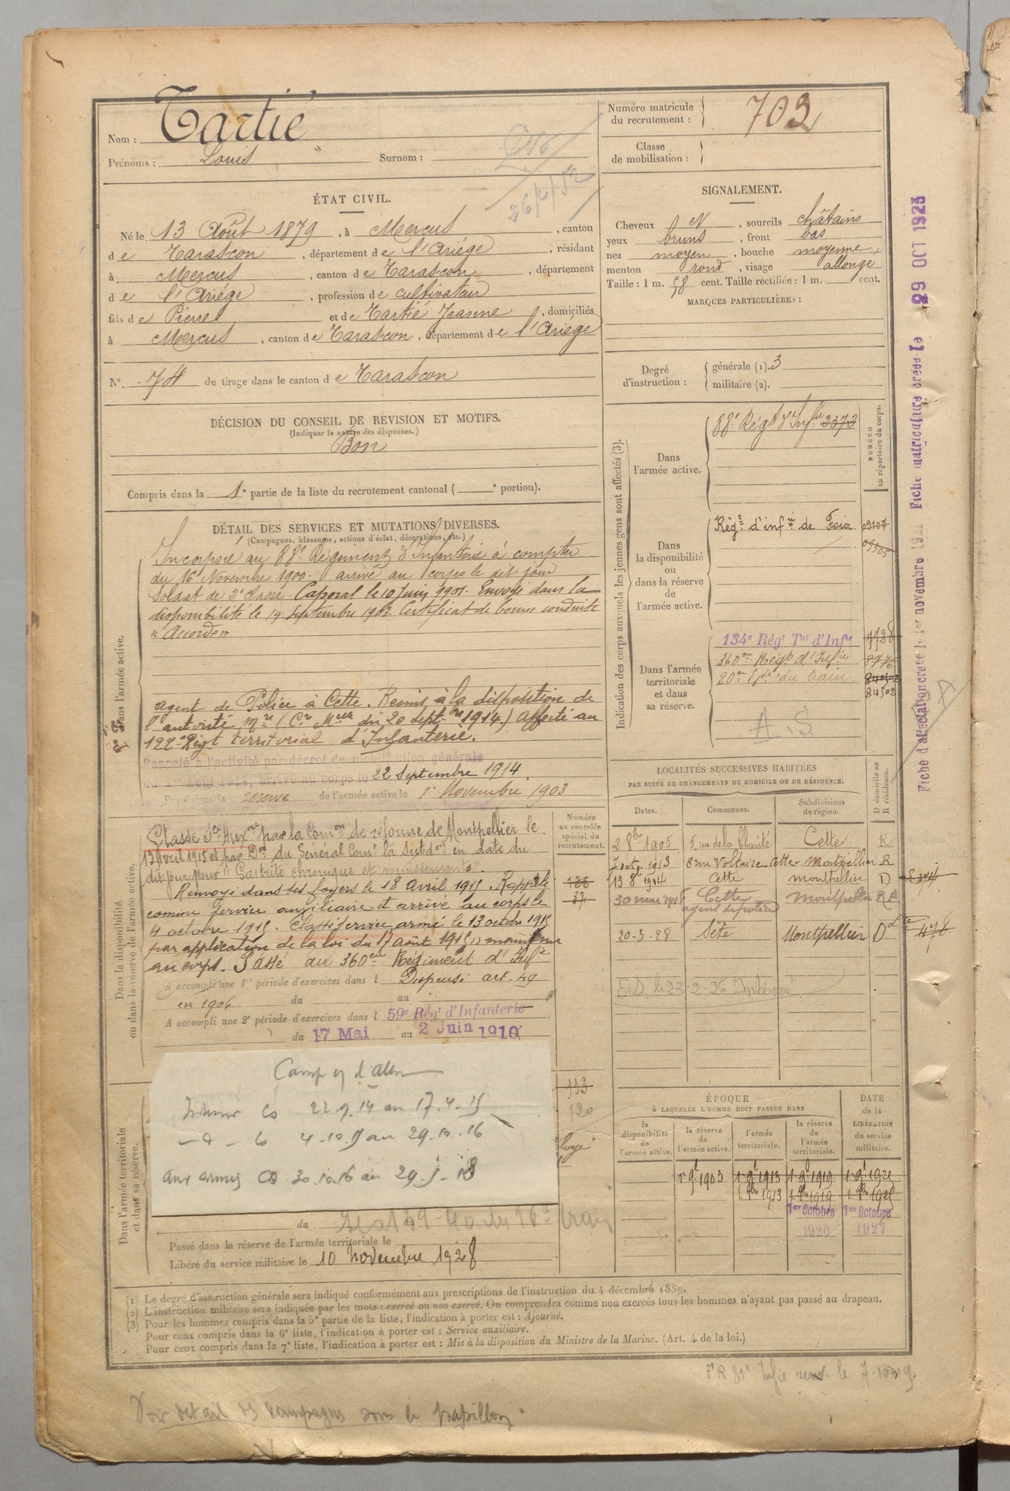 Nom : Tartié
Prénoms : Louis Surnom :
26/2/52
Numéro matricule du recrutement : 703
Classe de mobilisation :
ÉTAT CIVIL.
Né le 13 Août 1879, à Mercus, canton
de Tarascon, département de l'Ariège, résidant
à Mercus, canton de Tarascon, département
de l'Ariège, profession de cultivateur
fils de Pierre et de Tartié Jeanne, domiciliés
à Mercus, canton de Tarascon, département de l'Ariège
N° 74 de tirage dans le canton de Tarascon
SIGNALEMENT.
Cheveux N, sourcils châtains
yeux bruns, front bas
nez moyen, bouche moyenne,
menton rond, visage allongé
Taille : 1 m. 58 cent. Taille rectifiée : 1 m. cent.
MARQUES PARTICULIÈRES :
Degré d'instruction : générale (1). 3
militaire (2).
DÉCISION DU CONSEIL DE RÉVISION ET MOTIFS.
(Indiquer la nature des dispenses.)
Bon
Compris dans la 1e partie de la liste du recrutement cantonal ( e portion).
DÉTAIL DES SERVICES ET MUTATIONS DIVERSES.
(Campagnes, blessures, actions d'éclat, décorations, etc.)
Dans l'armée active.
Incorporé au 88e Régiment d'Infanterie à compter
du 16 Novembre 1900. arrivé au corps le dit jour
Soldat de 2e classe. Caporal le 10 Juin 1901. Envoyé dans la
disponibilité le 19 septembre 1903 Certificat de bonne conduite
"Accordé"
agent de Police à Cette. Remis à la disposition de
l'autorité mre (Cre Mlle du 20 Septbre 1914) affecté au
122e Régt territorial d'Infanterie.
Rappelé à l'activité par décret de mobilisation générale
du 1er Août 1914, arrivé au corps le 22 Septembre 1914.
Passé dans la réserve de l'armée active le 1er Novembre 1903
Dans la disponibilité ou dans la réserve de l'armée active.
Classé Sce Auxre par la Comon de réforme de Montpellier le
13 Avril 1915 et par Don du Général Comt la Subdon en date du
dit jour pour "Gastrite chronique et
Renvoyé dans ses foyers le 18 Avril 1915. Rappelé
comme service auxiliaire et arrivé au corps le
4 octobre 1915. Classé service armé le 13 octobre 1915
par application de la loi du 17 août 1915, maintenu
au corps. Passé au 360eme Régiment d'Infie
A accompli une 1re période d'exercices dans l Dispensé art. 49
en 1906 du au
A accompli une 2e période d'exercices dans l 59e Régt d'Infanterie
du 17 Mai au 2 Juin 1910
Camp c/ d'Allem
Intérieur CS 22.9.14 au 17.4.15
— d — CS 4.10.15 au 29.10.16
aux armées CD 30.10.16 au 29.5.18
Dans l'armée territoriale et dans sa réserve.
Passé dans la réserve de l'armée territoriale le
Libéré du service militaire le 10 novembre 1928
Numéro au contrôle spécial du recrutement.
37
113
120
Indication des corps auxquels les jeunes gens sont affectés (3).
NUMÉRO au répertoire du corps.
Dans l'armée active. 88e Régt d'Infie 3373
Dans la disponibilité ou dans la réserve de l'armée active. Régt d'infrie de Foix 03107
Dans l'armée territoriale et dans sa réserve. 134e Régt Tal d'Infie
360eme Régt d'Infie
20eme Esc. du train
24502
A.S.
LOCALITÉS SUCCESSIVES HABITÉES
PAR SUITE DE CHANGEMENTS DE DOMICILE OU DE RÉSIDENCE.
Dates. Communes. Subdivisions de région. D domicile ou R résidence.
2 8bre 1905 5, rue de la Charité Cette R
7 Septre 1913 8 rue Voltaire Cette Montpellier R
13 8bre 1914 Cette Montpellier D
30 mars Cette agent de police Montpellier R
20-3-28 Sète Montpellier D
ÉPOQUE
À LAQUELLE L'HOMME DOIT PASSER DANS
la disponibilité de l'armée active. la réserve de l'armée active. l'armée territoriale. la réserve de l'armée territoriale. DATE de la LIBÉRATION du service militaire.
1er 9bre 1903 1er 9bre 1913 1er 9bre 1919 1er 9bre 1921
1er Octobre 1920 1er Octobre 1927
(1) Le degré d'instruction générale sera indiqué conformément aux prescriptions de l'instruction du 4 décembre 1889.
(2) L'instruction militaire sera indiquée par les mots : exercé ou non exercé. On comprendra comme non exercés tous les hommes n'ayant pas passé au drapeau.
(3) Pour les hommes compris dans la 5e partie de la liste, l'indication à porter est : Ajourné.
Pour ceux compris dans la 6e liste, l'indication à porter est : Service auxiliaire.
Pour ceux compris dans la 7e liste, l'indication à porter est : Mis à la disposition du Ministre de la Marine. (Art. 4 de la loi.)
Voir détail des campagnes sous le papillon.
Fiche matriculaire créée le 29 OCT 1923